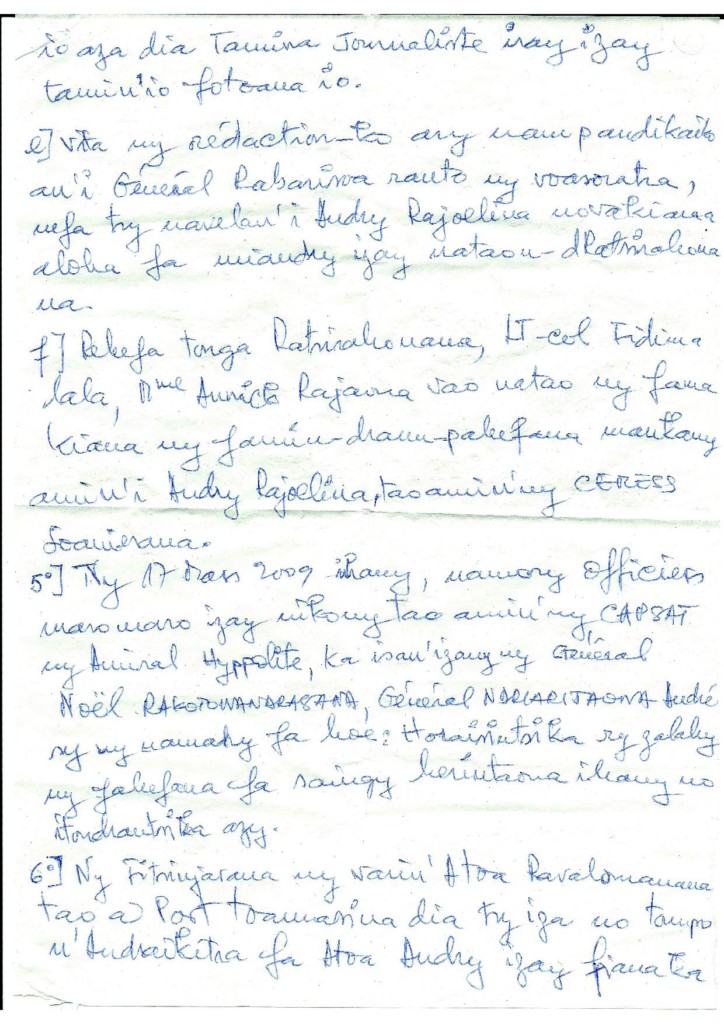 io aza dia Tamina Journaliste iray izay
tamin'io fotoana io.
e] Vita ny rédaction-ko ary nampandikaiko
an'i Général Rabarisoa ranto ny voasoratra,
nefa tsy navelan'i Andry Rajoelina novakiana
aloha fa miandry izay nataon-dRatsirahona
na.
f] Rehefa tonga Ratsirahonana, LT-col Fidima
lala, Mme Annick Rajaona vao natao ny fama
kiana ny famin-dram-pahefana mankany
amin'i Andry Rajoelina, tao amin'ny CERESS
Soanierana.
5°] Ny 17 Mars 2009 ihany, namory Officiers
maromaro izay nikomy tao amin'ny CAPSAT
ny Amiral Hyppolite, ka isan'izany ny Général
Noël RAKOTONANDRASANA, Général NDRIARIJAONA André
sy ny namany fa hoe: Horaisintsika ry zalahy
ny fahefana fa saingy herintaona ihany no
itondrantsika azy.
6°] Ny Fitsinjarana ny varin'Atoa Ravalomanana
tao a Port Toamasina dia tsy iza no tompo
n'Andraikitra fa Atoa Andry izay fianaka